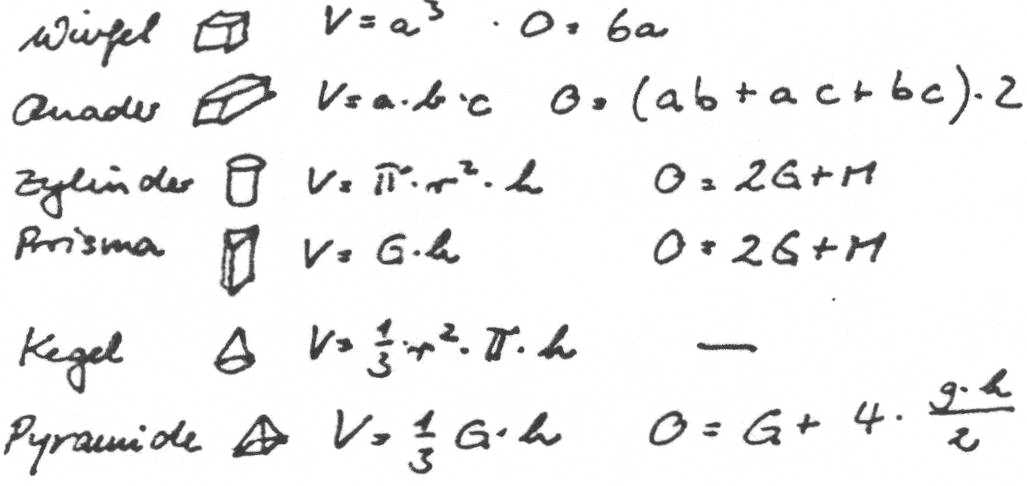 Würfel V = a³ · O = 6a
Quader V = a · b · c O = (ab + ac + bc) · 2
Zylinder V = π · r² · h O = 2G + M
Prisma V = G · h O = 2G + M
Kegel V = 1/3 · r² · π · h —
Pyramide V = 1/3 G · h O = G + 4 · g · h / 2